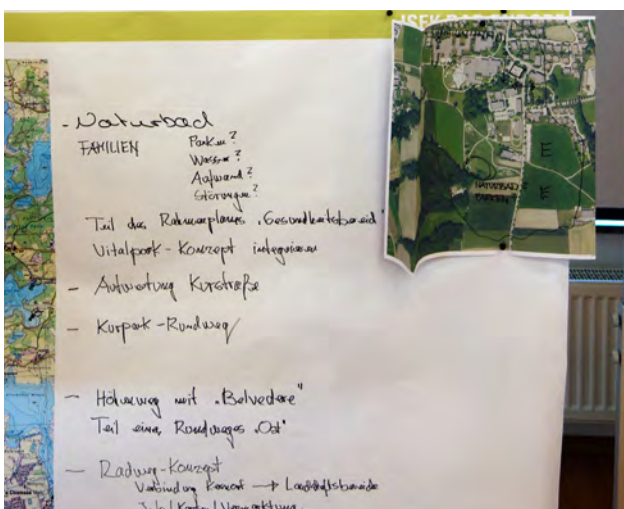 - Naturbad
FAMILIEN Parken?
Wasser?
Aufwand?
Störungen?
Teil des Rahmenplanes "Gesundheitsbereich"
Vitalpark-Konzept integrieren
- Aufwertung Kurstraße
- Kurpark-Rundweg
- Höhenweg mit "Belvedere"
Teil eines Rundweges "Ost"
- Radweg-Konzept
Verbindung Kurort → Landschaftsbereiche
ISEK
NATURBAD?